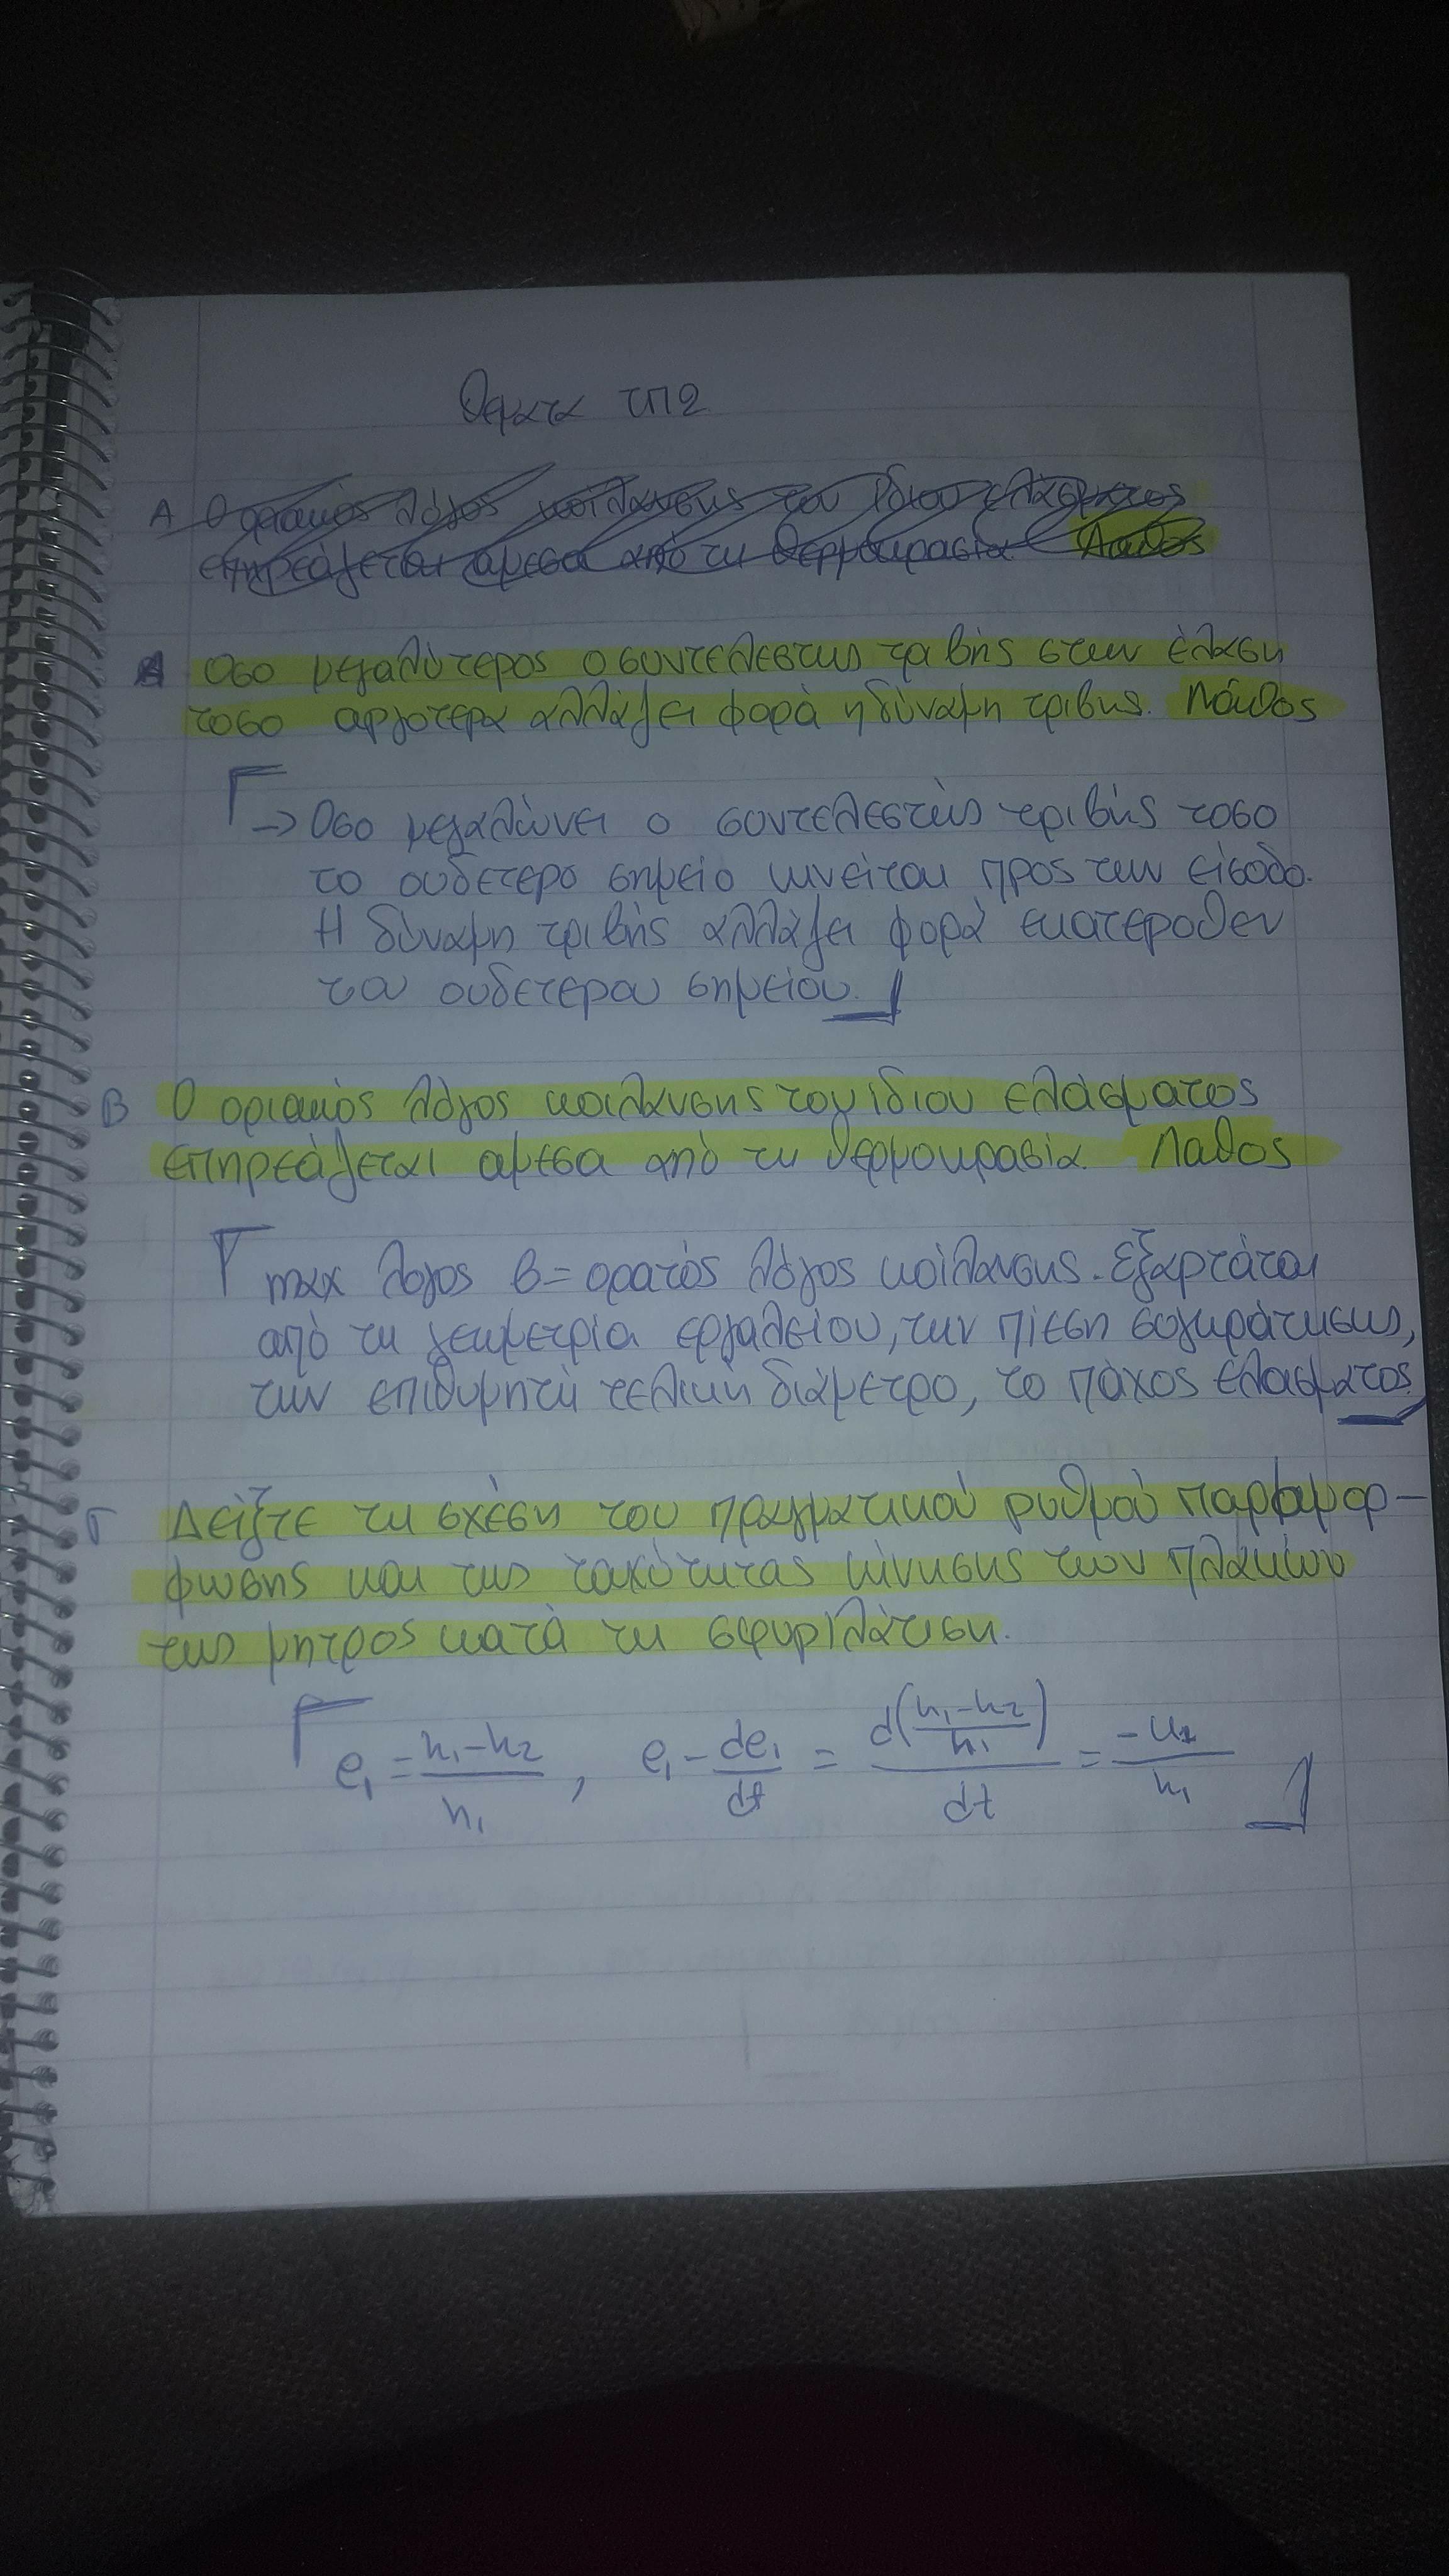 Θεματα ΤΠ2
Α Ο οριακός λόγος κοίλανσης του ίδιου ελάσματος
επηρεάζεται αμεσα από τη θερμοκρασία. Λαθος
Α Οσο μεγαλύτερος ο συντελεστης τριβής στην έλαση
τοσο αργοτερα αλλάζει φορά η δύναμη τριβης. Λάθος
→ Οσο μεγαλώνει ο συντελεστής τριβής τοσο
το ουδετερο σημείο κινείται προς την είσοδο.
Η δύναμη τριβής αλλάζει φορά εκατεροθεν
του ουδετερου σημείου.
Β Ο οριακός λόγος κοιλανσης του ιδιου ελάσματος
επηρεάζεται αμεσα από τη θερμοκρασία. Λαθος
max λογος β = ορατός λόγος κοίλανσης. Εξαρτάται
από τη γεωμετρία εργαλείου, την πίεση συγκράτησης,
την επιθυμητή τελική διάμετρο, το πάχος ελασματος.
Γ Δείξτε τη σχέση του πραγματικού ρυθμού παραμορ-
φωσης και της ταχύτητας κίνησης των πλακών
της μητρος κατά τη σφυριλάτιση.
e₁ = h₁-h₂ / h₁ , e₁ - de₁/dt = d(h₁-h₂ / h₁) / dt = -u₁ / h₁